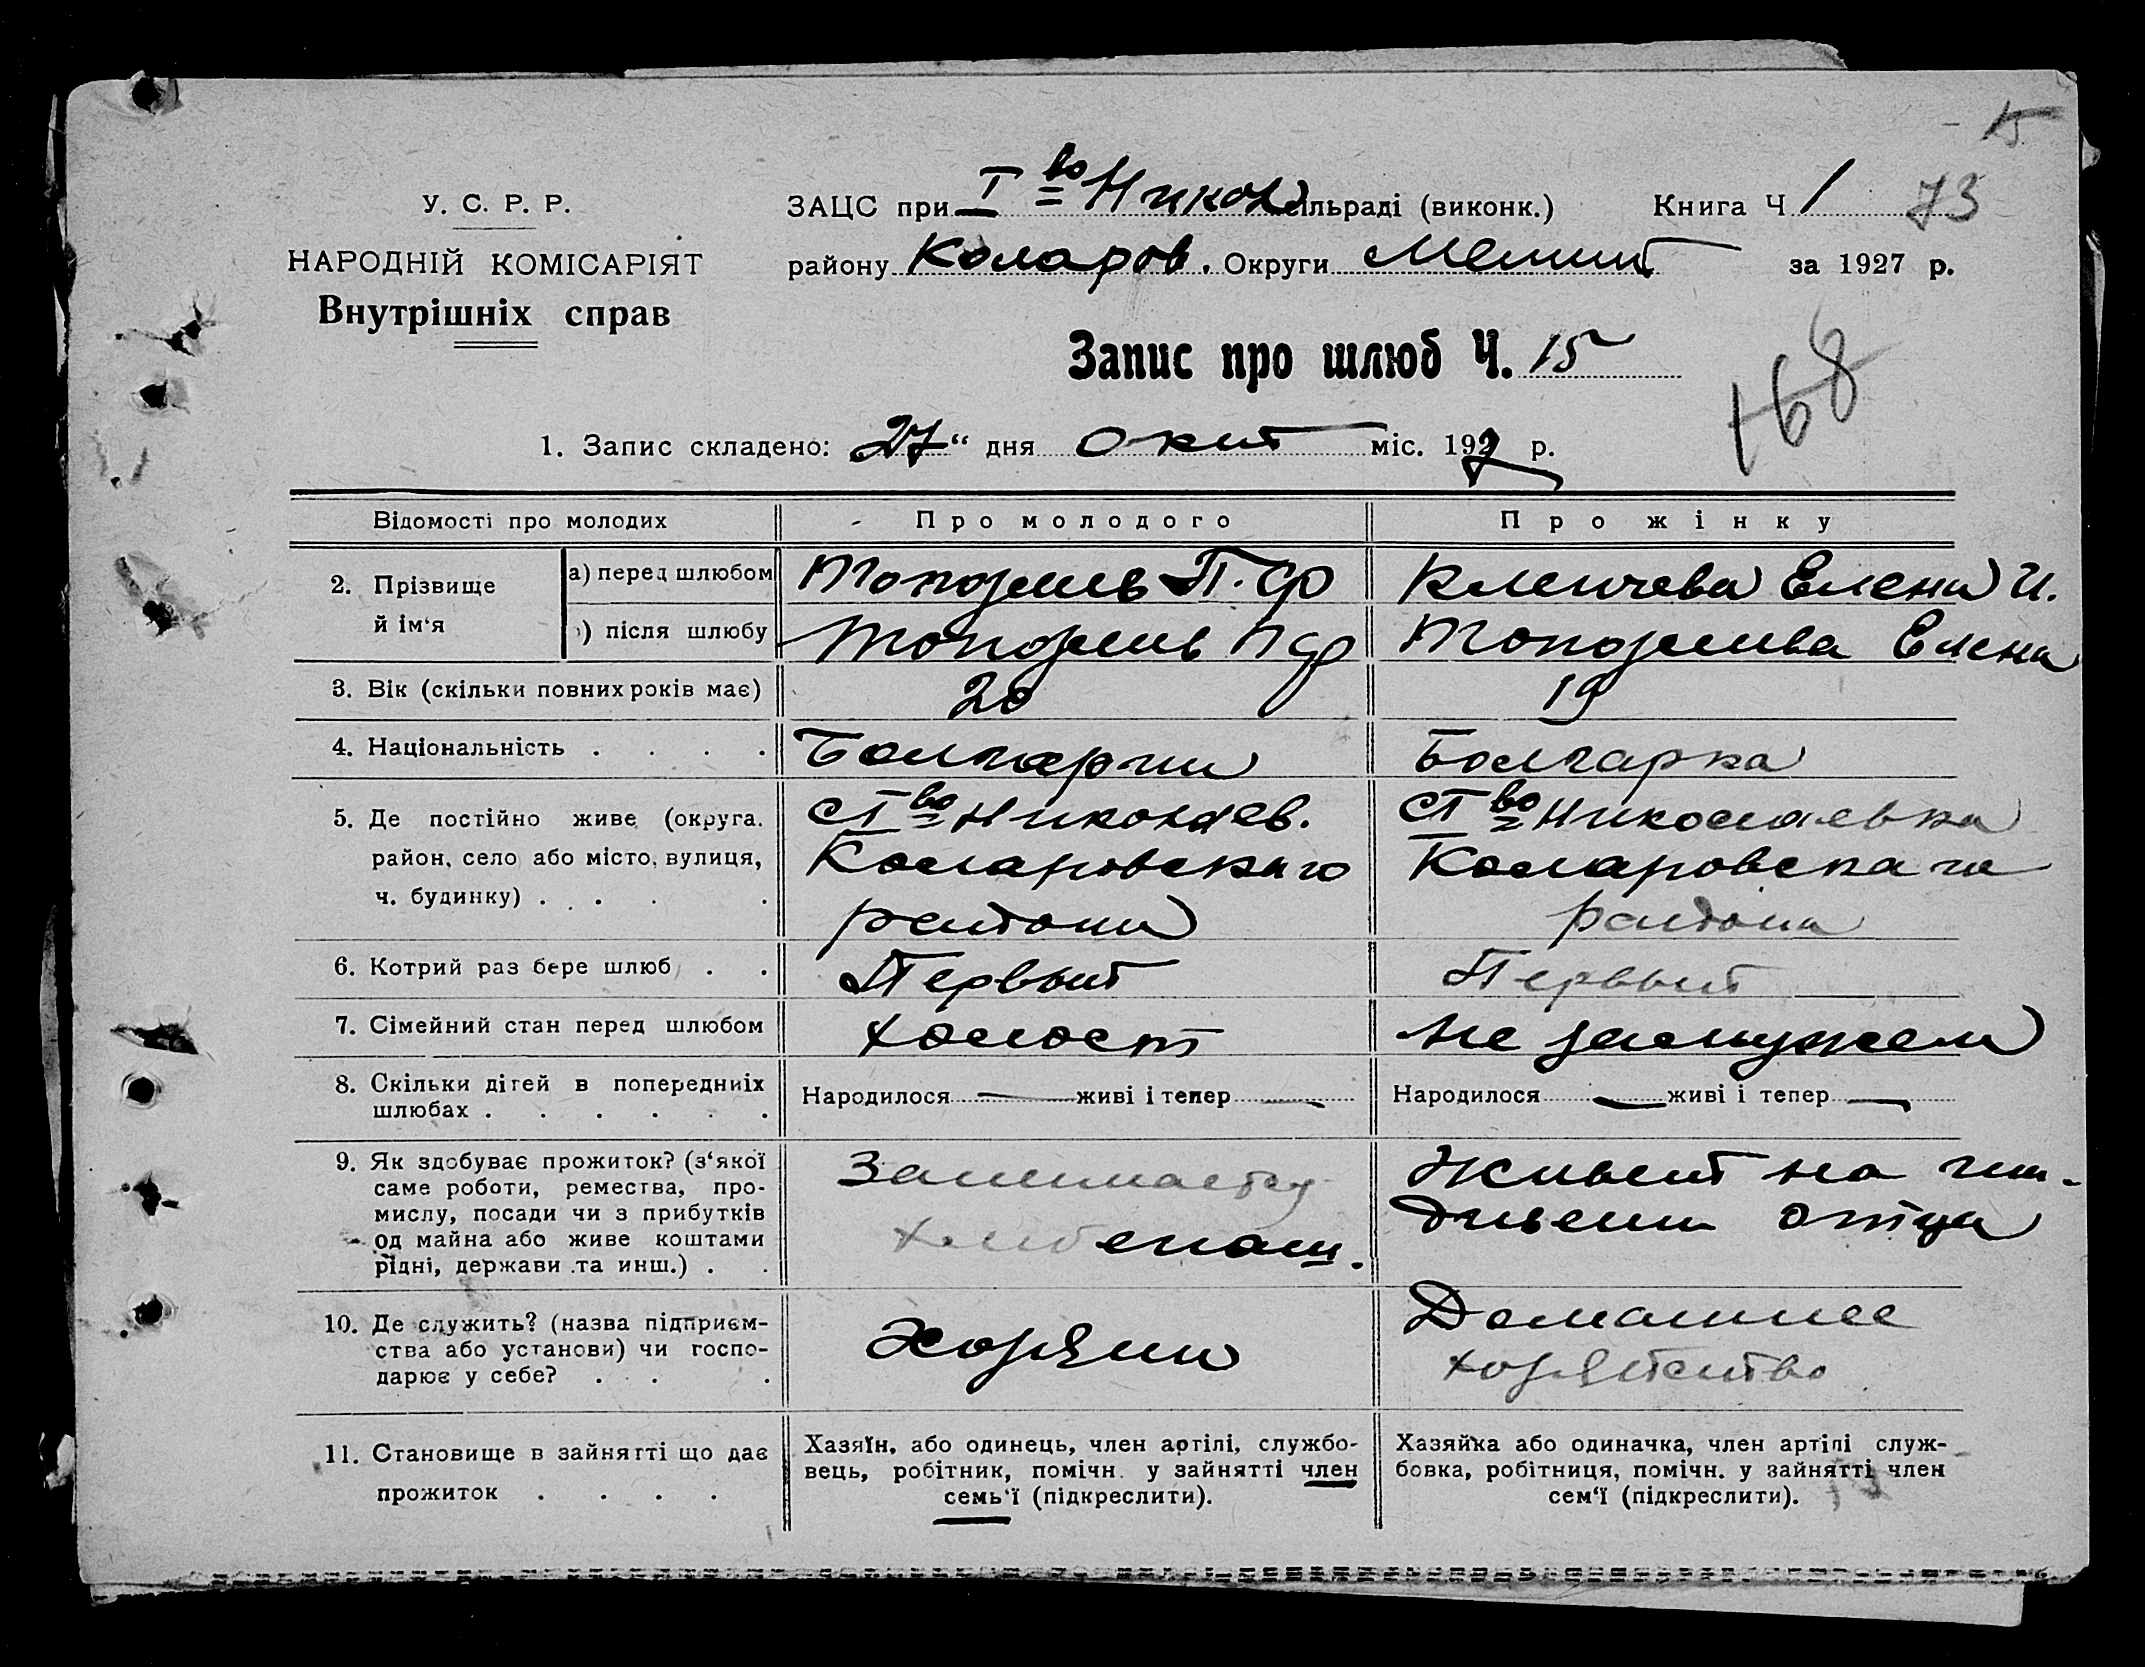 15
У. С. Р. Р.
НАРОДНІЙ КОМІСАРІЯТ
Внутрішніх справ
ЗАЦС при І во Никол сільраді (виконк.) Книга Ч 1 73
району Коларов. Округи Мелит за 1927 р.
Запис про шлюб Ч. 15
168
1. Запис складено: 27“ дня окт міс. 1927 р.
Відомості про молодих Про молодого Про жінку
2. Прізвище й ім‘я
а) перед шлюбом П. Ф Елена И.
) після шлюбу П Ф Елена
3. Вік (скільки повних років має) 20 19
4. Національність . . . . Болгарин Болгарка
5. Де постійно живе (округа. район, село або місто, вулиця, ч. будинку) . . . .
Ст во Николаев.
Коларовского
района
Ст во Николаевка
Коларовскаго
района
6. Котрий раз бере шлюб . . Первый Первый
7. Сімейний стан перед шлюбом холост не замужем
8. Скільки дітей в попередниіх
шлюбах . . . . . .
Народилося — живі і тепер —
Народилося — живі і тепер —
9. Як здобуває прожиток? (з‘якої
саме роботи, ремества, про-
мислу, посади чи з прибутків
од майна або живе коштами
рідні, держави та инш.) . .
Занимается
хлебопаш.
Живет на иж-
дивении отца
10. Де служить? (назва підприєм-
ства або установи) чи госпо-
дарює у себе? . . .
Хозяин
Домашнее
хозяйство
11. Становище в зайнятті що дає
прожиток . . . .
Хазяїн, або одинець, член артілі, службо-
вець, робітник, помічн. у зайнятті член
семь‘ї (підкреслити).
Хазяйка або одиначка, член артілі служ-
бовка, робітниця, помічн. у зайнятті член
сем‘ї (підкреслити).